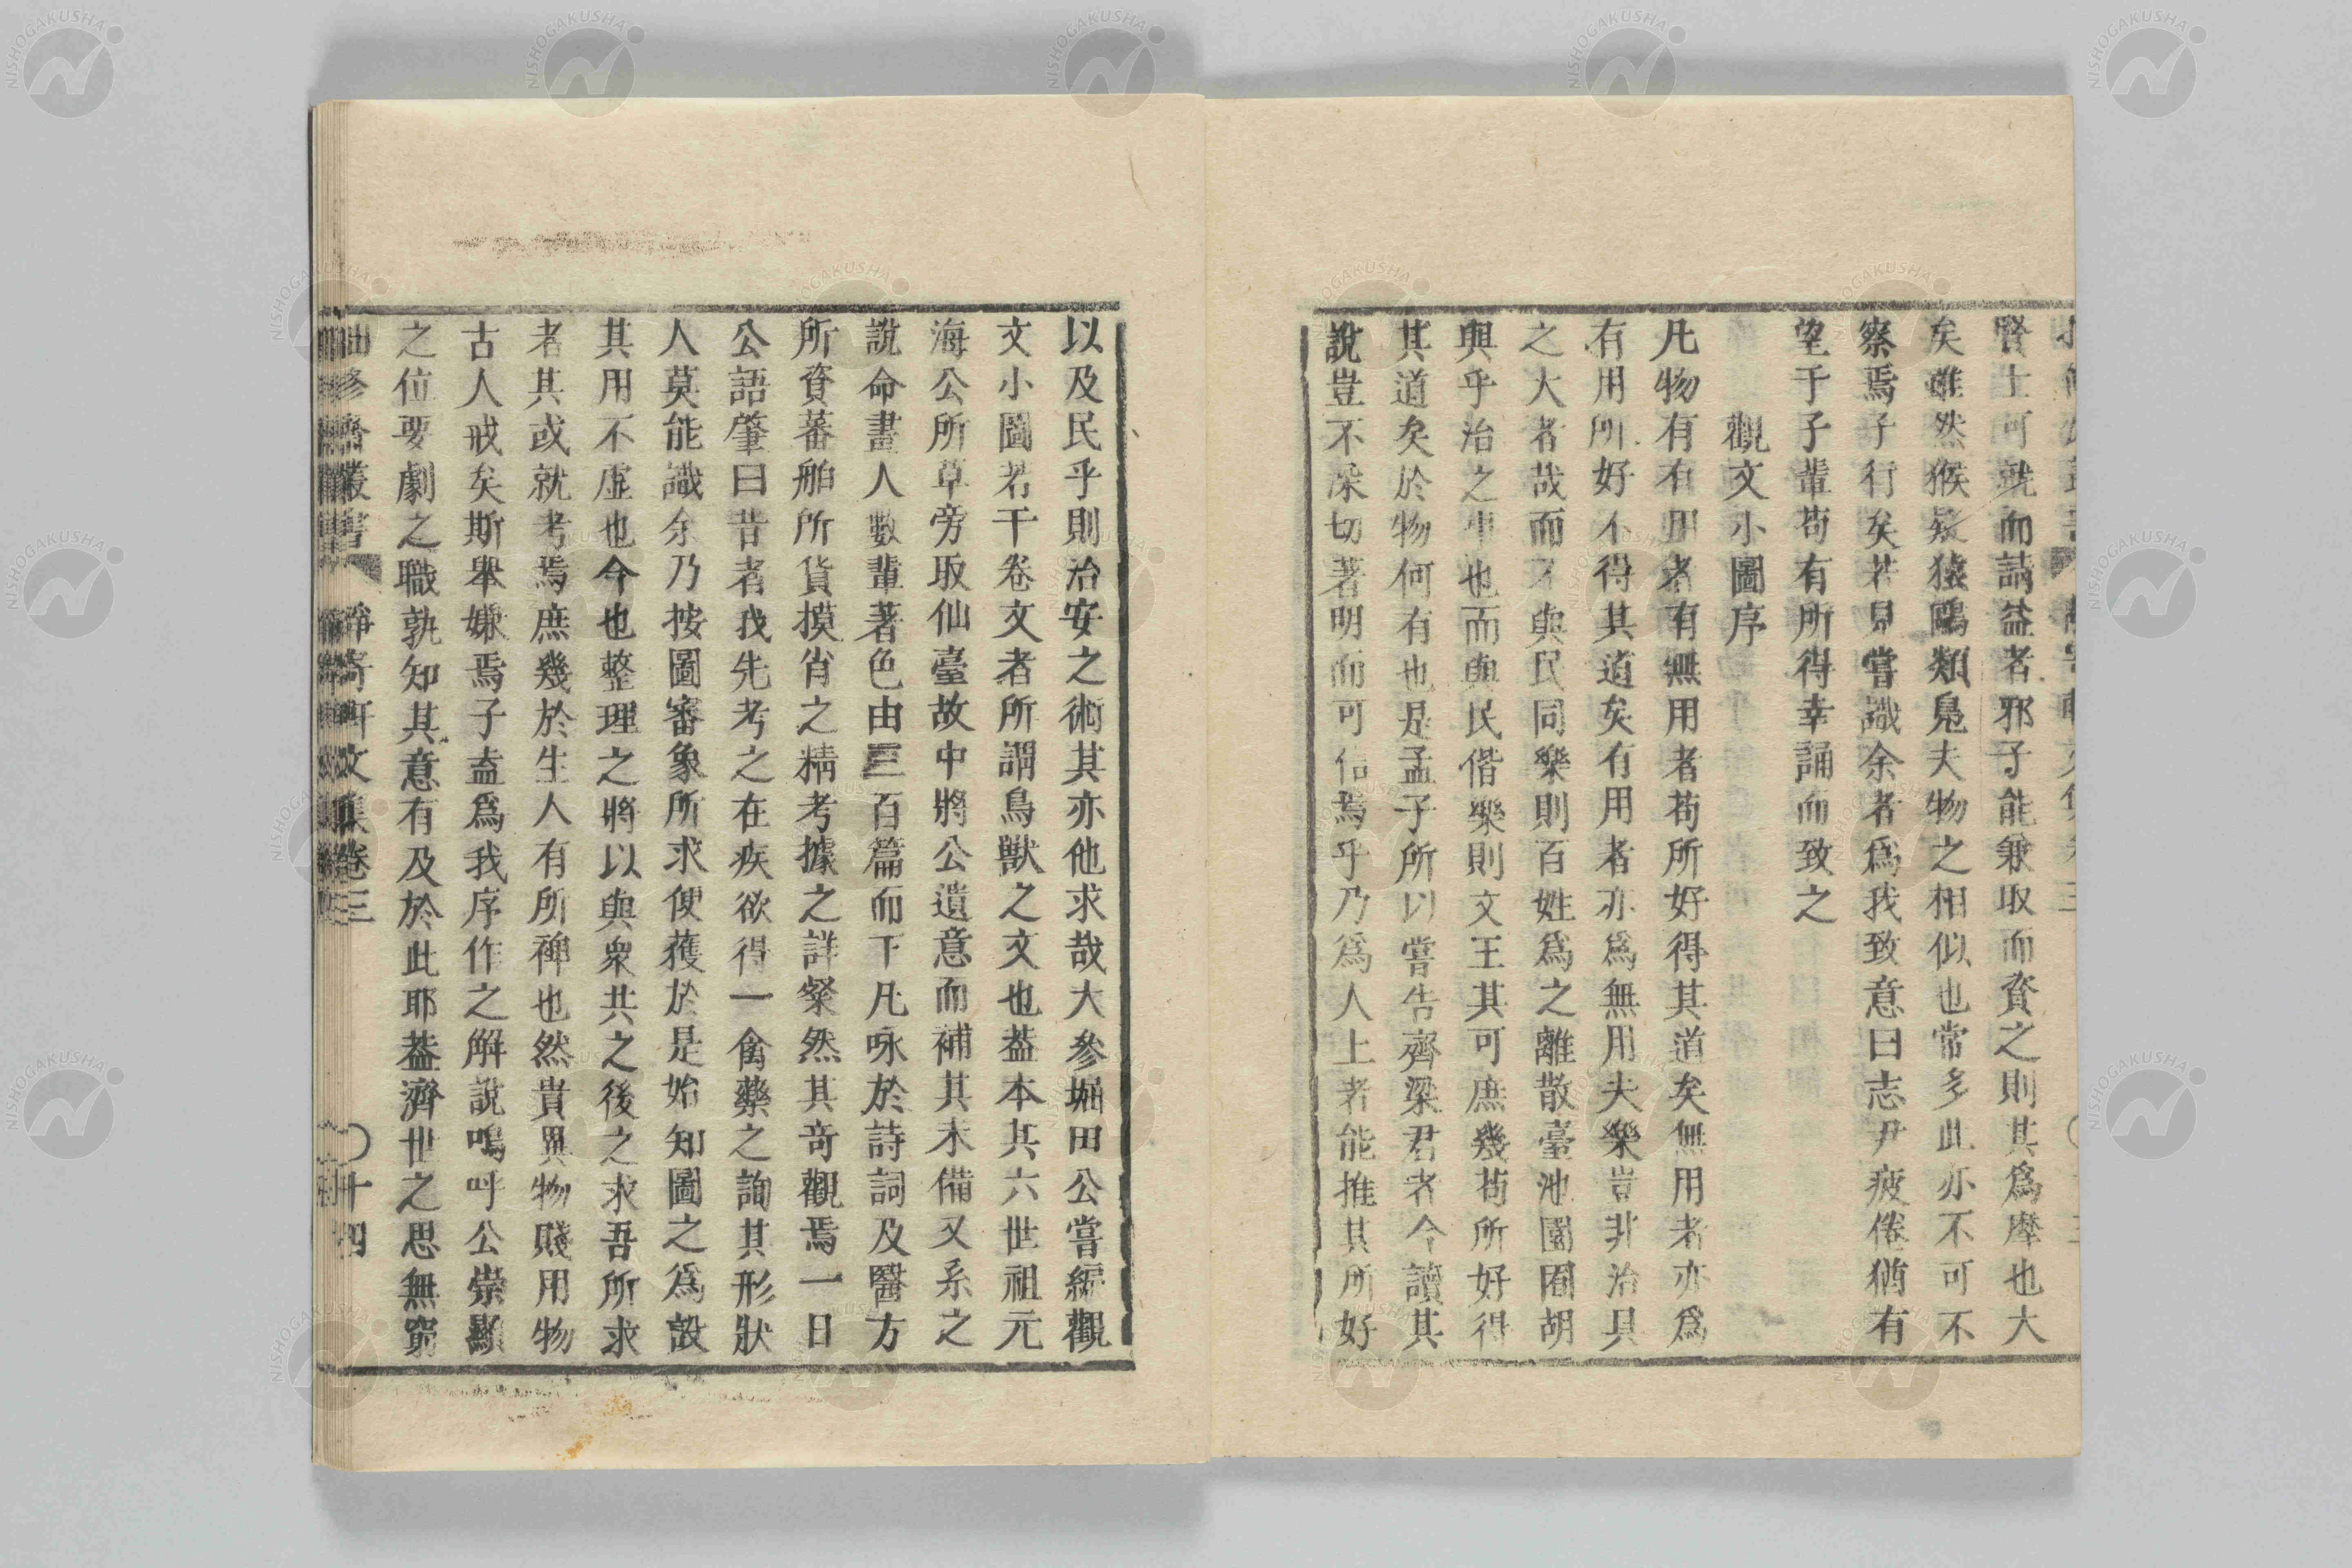 賢士可就而請益者邪子能兼取而資之則其爲摩也大
矣雖然猴疑猿鷗類鳧夫物之相似也常多此亦不可不
察焉子行矣若見嘗識余者爲我致意曰志尹疲倦猶有
望于子輩苟有所得幸誦而致之
觀文小圖序
凡物有有用者有無用者苟所好得其道矣無用者亦爲
有用所好不得其道矣有用者亦爲無用夫樂豈非治具
之大者哉而不與民同樂則百姓爲之離散臺池園囿胡
與乎治之事也而與民偕樂則文王其可庶幾苟所好得
其道矣於物何有也是孟子所以嘗告齊梁君者今讀其
說豈不深切著明而可信焉乎乃爲人上者能推其所好
以及民乎則治安之術其亦他求哉大參堀田公嘗編觀
文小圖若干卷文者所謂鳥獸之文也葢本其六世祖元
海公所草旁取仙臺故中將公遺意而補其未備又系之
說命畫人數輩著色由三百篇而下凡咏於詩詞及醫方
所資蕃舶所貨摸肖之精考據之詳粲然其奇觀焉一日
公語肇曰昔者我先考之在疾欲得一禽藥之詢其形狀
人莫能識余乃按圖審象所求便獲於是始知圖之爲設
其用不虛也今也整理之將以與衆共之後之求吾所求
者其或就考焉庶幾於生人有所裨也然貴異物賤用物
古人戒矣斯舉嫌焉子盍爲我序作之解說嗚呼公崇顯
之位要劇之職孰知其意有及於此耶葢濟世之思無窮
修齊叢書 靜寄軒文集卷三 〇十四